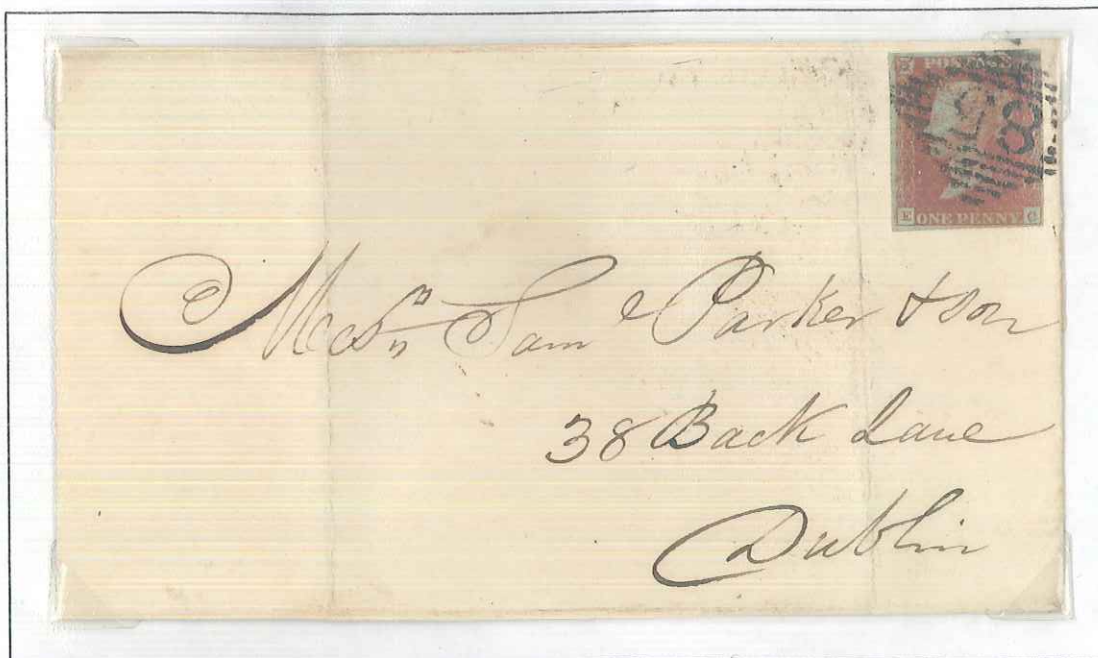 POSTAGE
8
E ONE PENNY G
Mess.rs Sam.l Parker & Son
38 Back Lane
Dublin